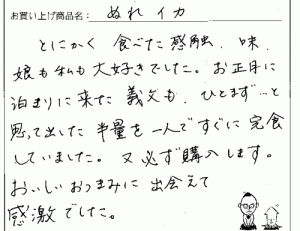 お買い上げ商品名： ぬれイカ
とにかく 食べた感触、味、
娘も私も大好きでした。お正月に
泊まりに来た義父も、ひとまず…と
思って出した半量を一人ですぐに完食
していました。又必ず購入します。
おいしいおつまみに出会えて
感激でした。